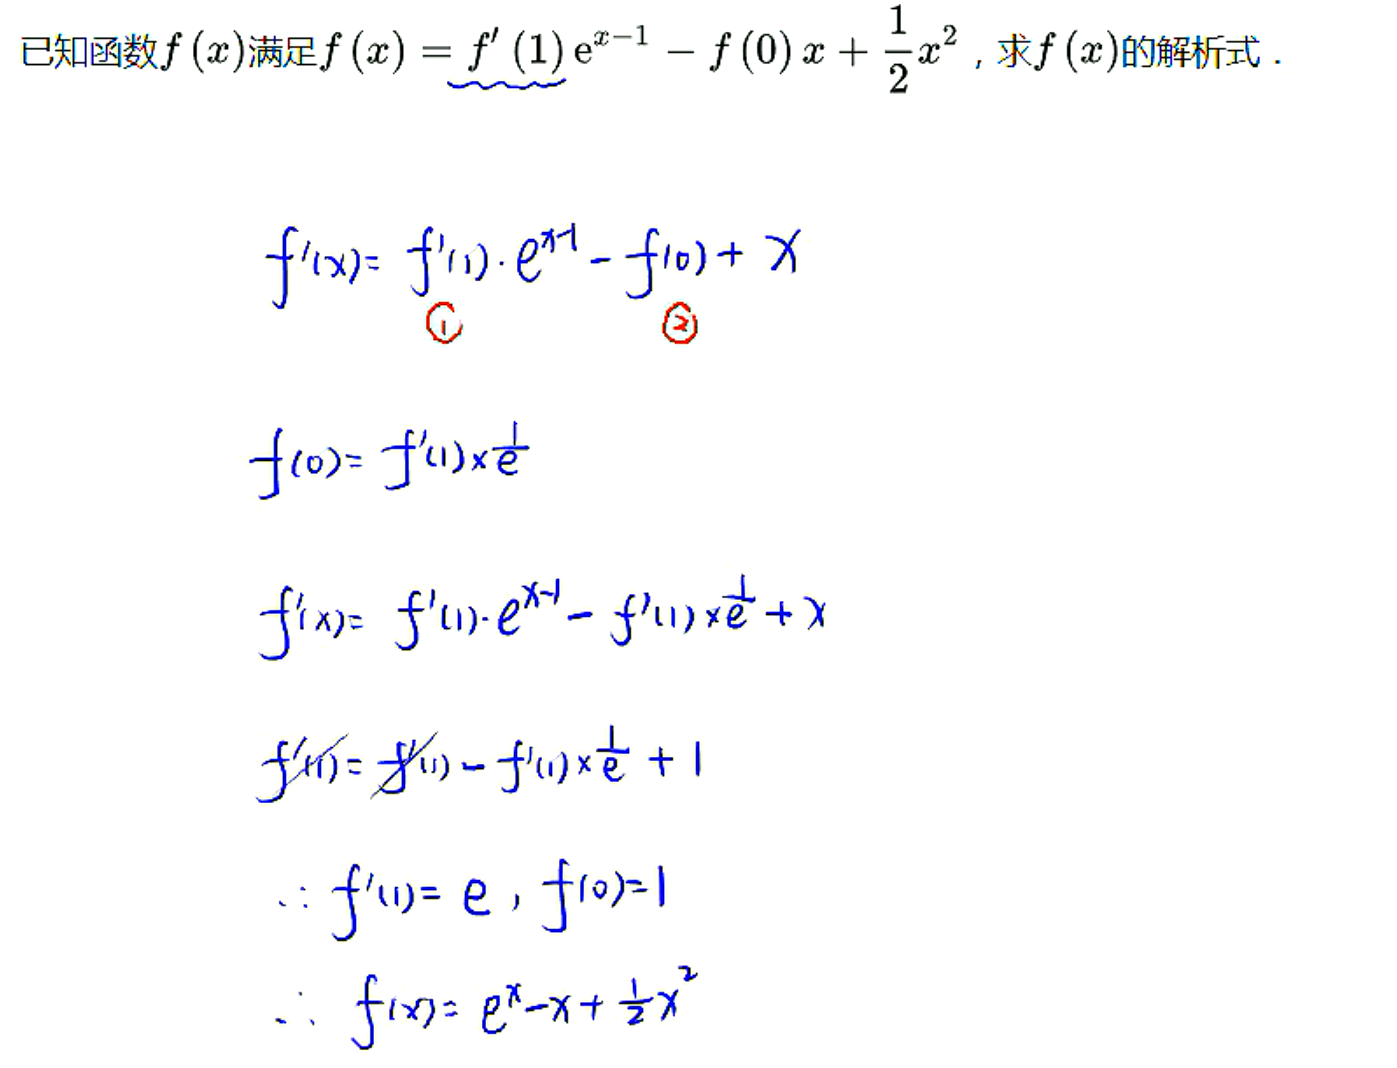 已知函数f(x)满足f(x) = f′(1)e^{x−1} − f(0)x + \frac{1}{2}x²，求f(x)的解析式．
f'(x)= f'(1)·e^{x-1} - f(0) + x
① ②
f(0)= f'(1)×\frac{1}{e}
f'(x)= f'(1)·e^{x-1} - f'(1)×\frac{1}{e} + x
f'(1)= f'(1) - f'(1)×\frac{1}{e} + 1
∴ f'(1)= e , f(0)=1
∴ f(x)= e^x -x + \frac{1}{2}x²